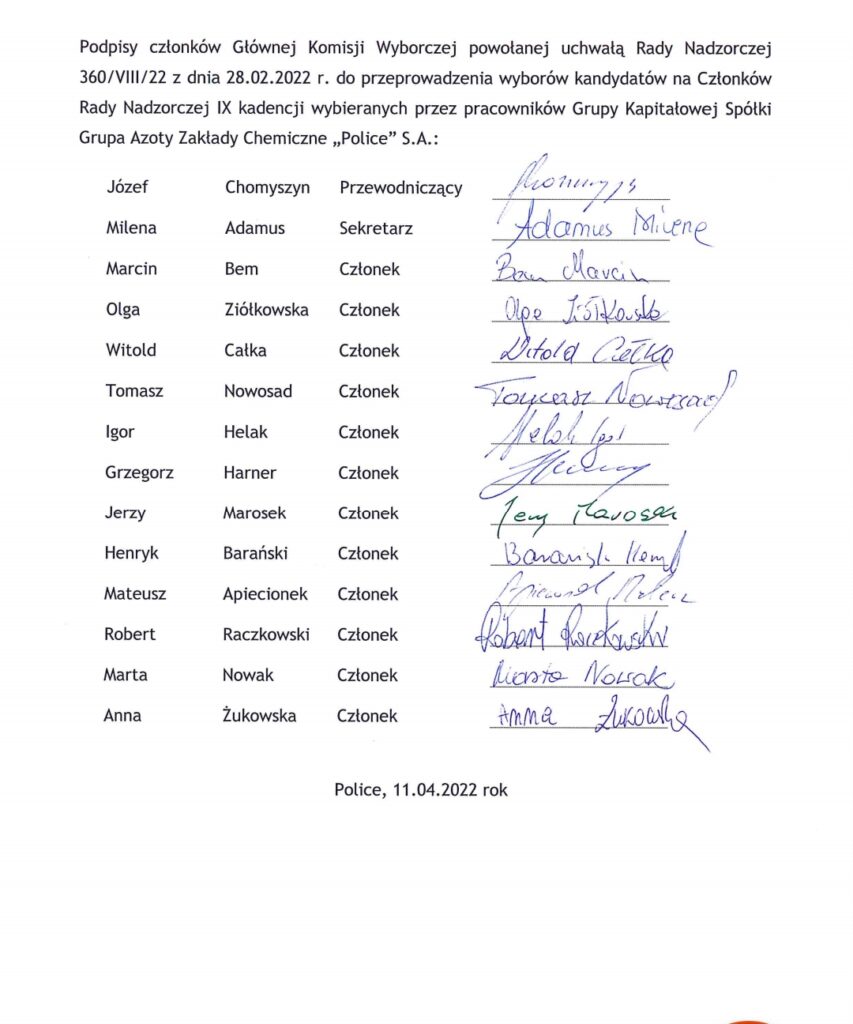 Podpisy członków Głównej Komisji Wyborczej powołanej uchwałą Rady Nadzorczej
360/VIII/22 z dnia 28.02.2022 r. do przeprowadzenia wyborów kandydatów na Członków
Rady Nadzorczej IX kadencji wybieranych przez pracowników Grupy Kapitałowej Spółki
Grupa Azoty Zakłady Chemiczne „Police” S.A.:
Józef Chomyszyn Przewodniczący
Milena Adamus Sekretarz Adamus Milena
Marcin Bem Członek Bem Marcin
Olga Ziółkowska Członek Olga Ziółkowska
Witold Całka Członek Witold Całka
Tomasz Nowosad Członek Tomasz Nowosad
Igor Helak Członek Helak Igor
Grzegorz Harner Członek
Jerzy Marosek Członek Jerzy Marosek
Henryk Barański Członek Barański Henryk
Mateusz Apiecionek Członek
Robert Raczkowski Członek Robert Raczkowski
Marta Nowak Członek Marta Nowak
Anna Żukowska Członek Anna Żukowska
Police, 11.04.2022 rok